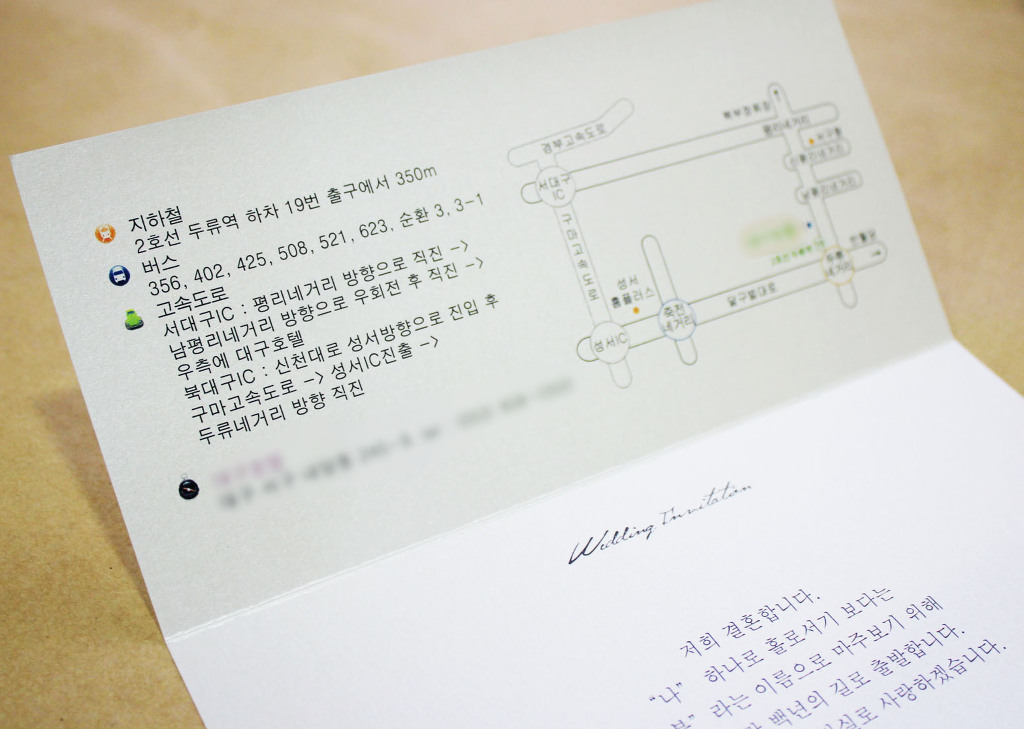 지하철
2호선 두류역 하차 19번 출구에서 350m
버스
356, 402, 425, 508, 521, 623, 순환 3, 3-1
고속도로
서대구IC : 평리네거리 방향으로 직진 ->
남평리네거리 방향으로 우회전 후 직진 ->
우측에 대구호텔
북대구IC : 신천대로 성서방향으로 진입 후
구마고속도로 -> 성서IC진출 ->
두류네거리 방향 직진
경부고속도로
서대구
IC
구마고속도로
성서
홈플러스
성서IC
죽전
네거리
달구벌대로
평리네거리
두류
네거리
Wedding Invitation
저희 결혼합니다.
"나" 하나로 홀로서기 보다는
라는 이름으로 마주보기 위해
백년의 길로 출발합니다.
사랑하겠습니다.